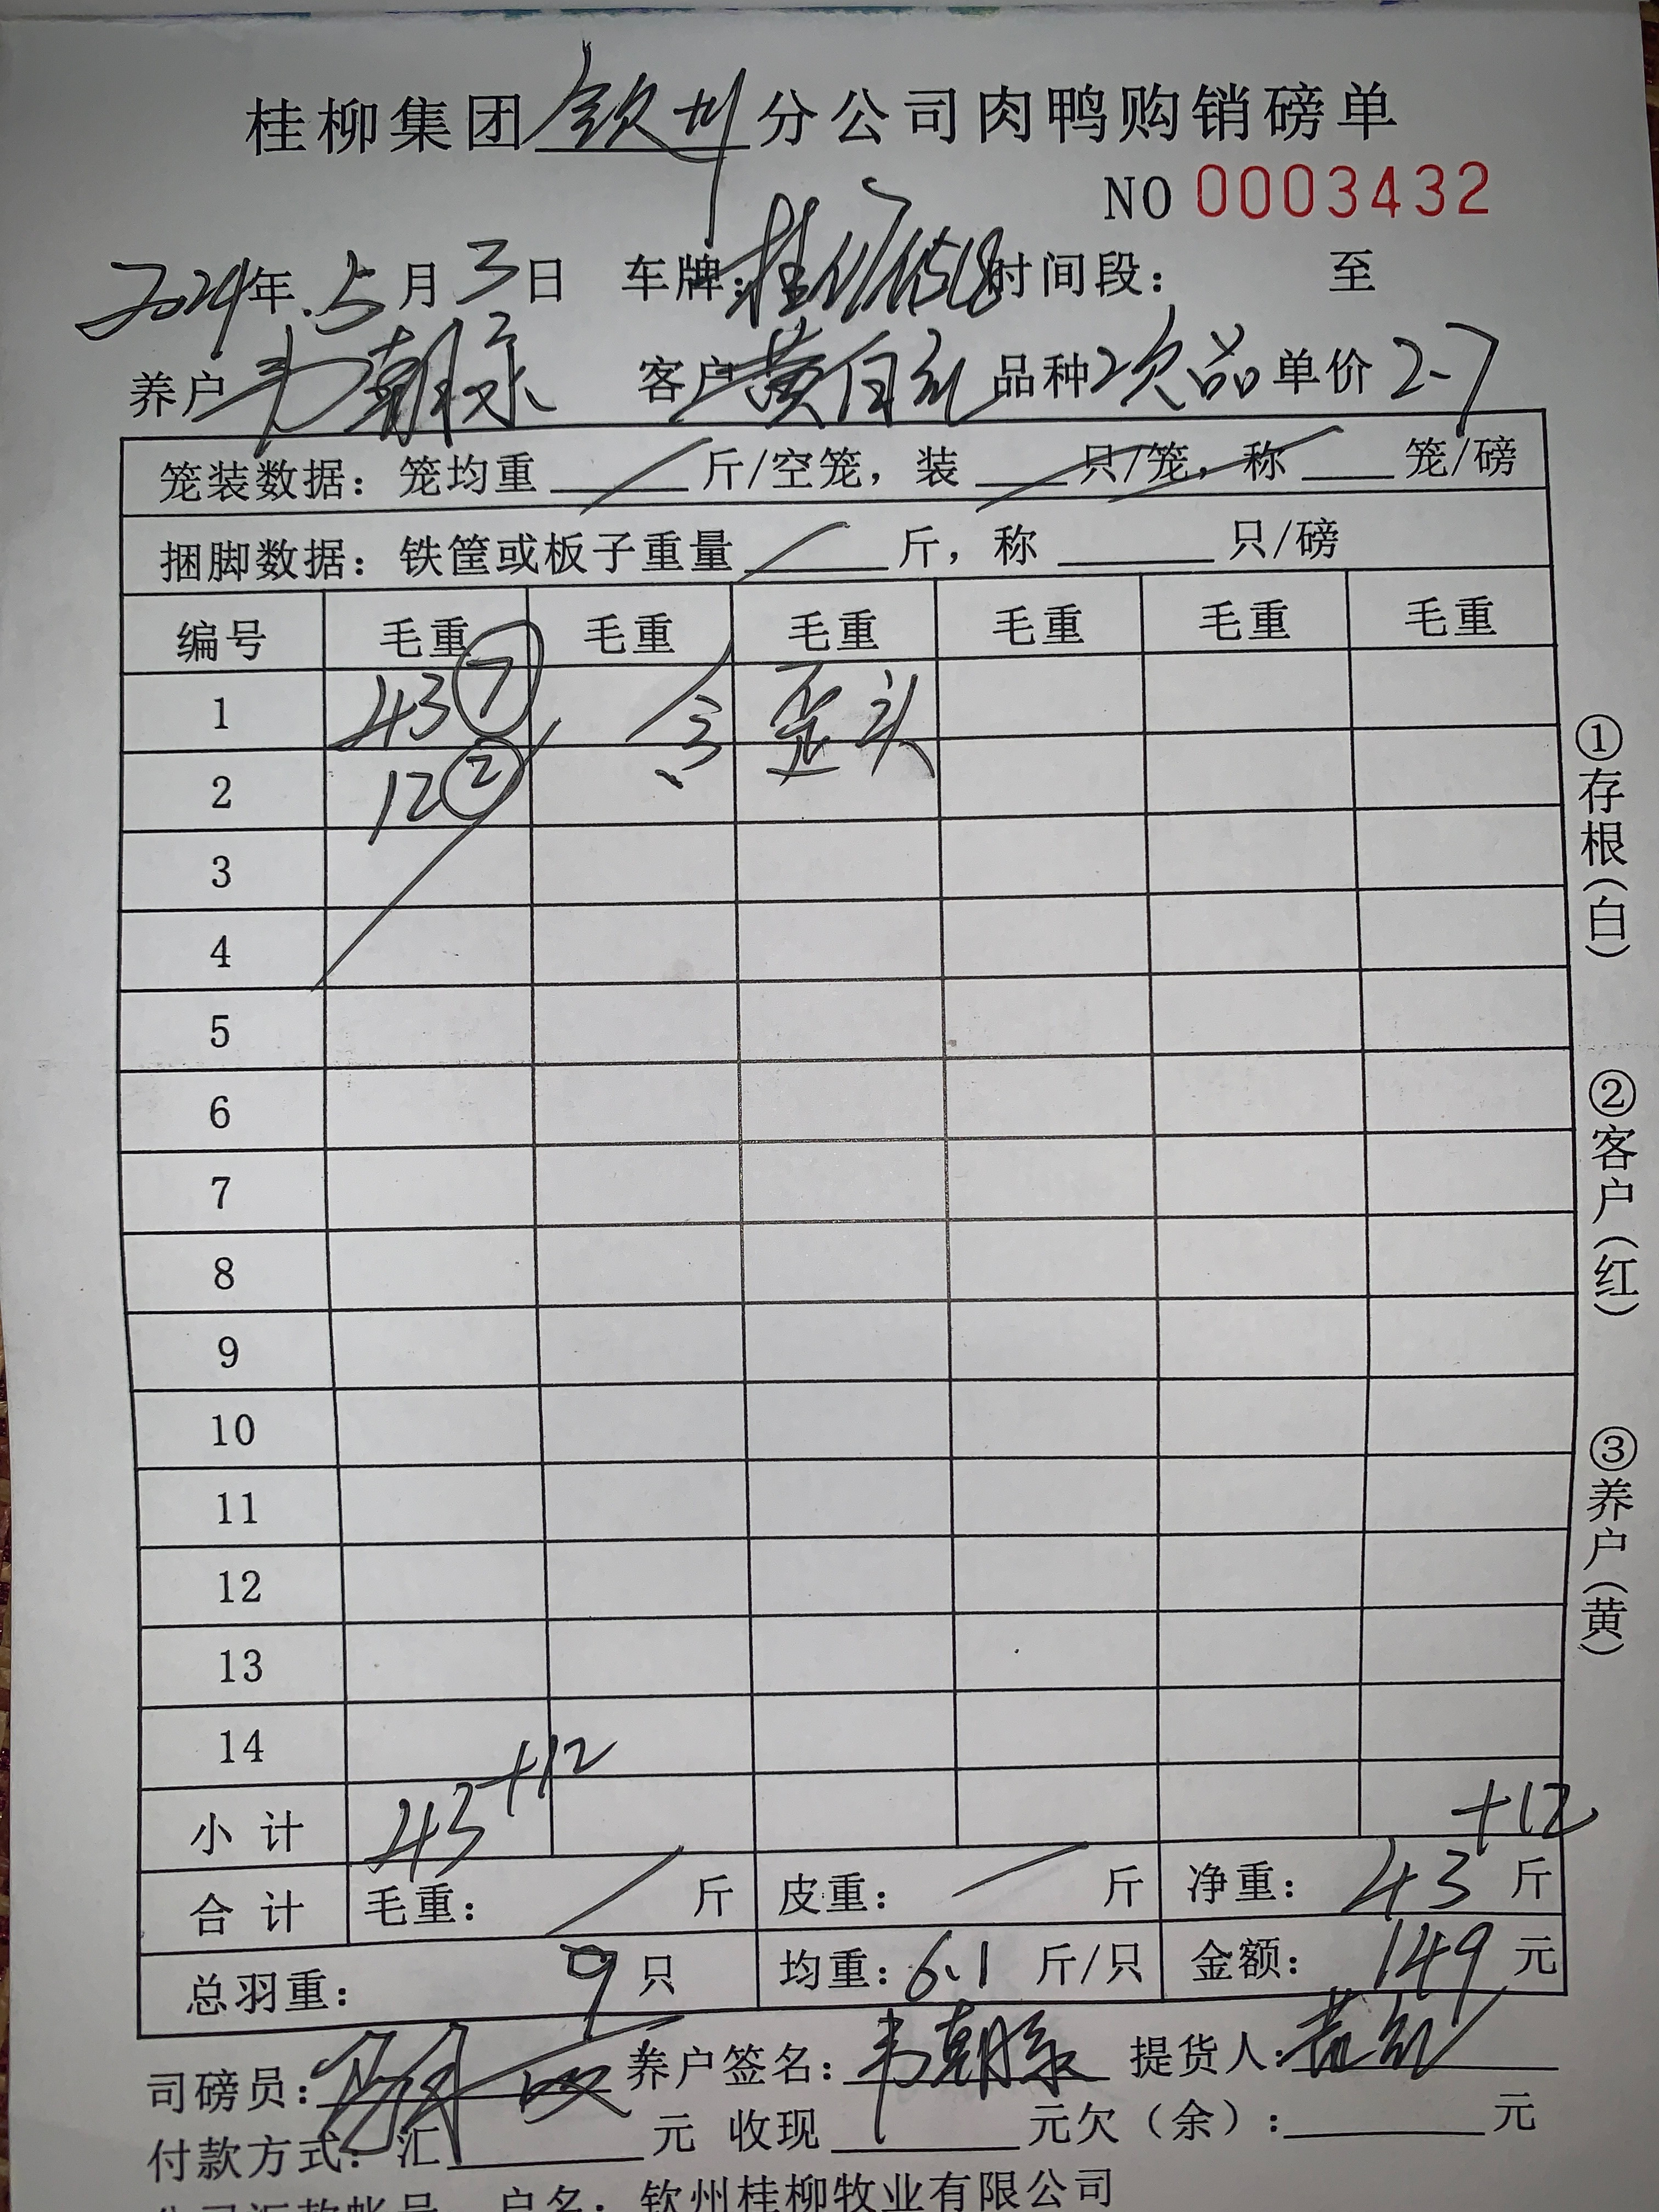 桂柳集团钦州分公司肉鸭购销磅单
NO 0003432
2024年.5月3日 车牌: 时间段: 至
养户韦朝 客户黄自 品种2次品单价2-7
笼装数据: 笼均重 斤/空笼, 装 只/笼, 称 笼/磅
捆脚数据: 铁筐或板子重量 斤, 称 只/磅
编号 毛重 毛重 毛重 毛重 毛重 毛重
1 43 ⑦ 含 歪头
2 12 ②
3
4
5
6
7
8
9
10
11
12
13
14
小计 43+12 +12
合计 毛重: 斤 皮重: 斤 净重: 43 斤
总羽重: 9 只 均重: 6.1 斤/只 金额: 149 元
司磅员: 养户签名: 韦朝 提货人:
付款方式: 汇 元 收现 元欠(余): 元
户名: 钦州桂柳牧业有限公司
①存根(白)
②客户(红)
③养户(黄)